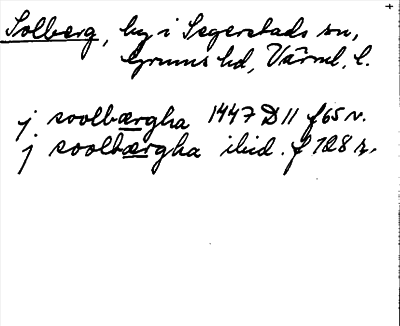 Solberg, by i Segerstads sn,
Grums hd, Värml. l.
j soolbærgha 1447 D 11 f 65 v.
j soolbærgha ibid. f 128 r.